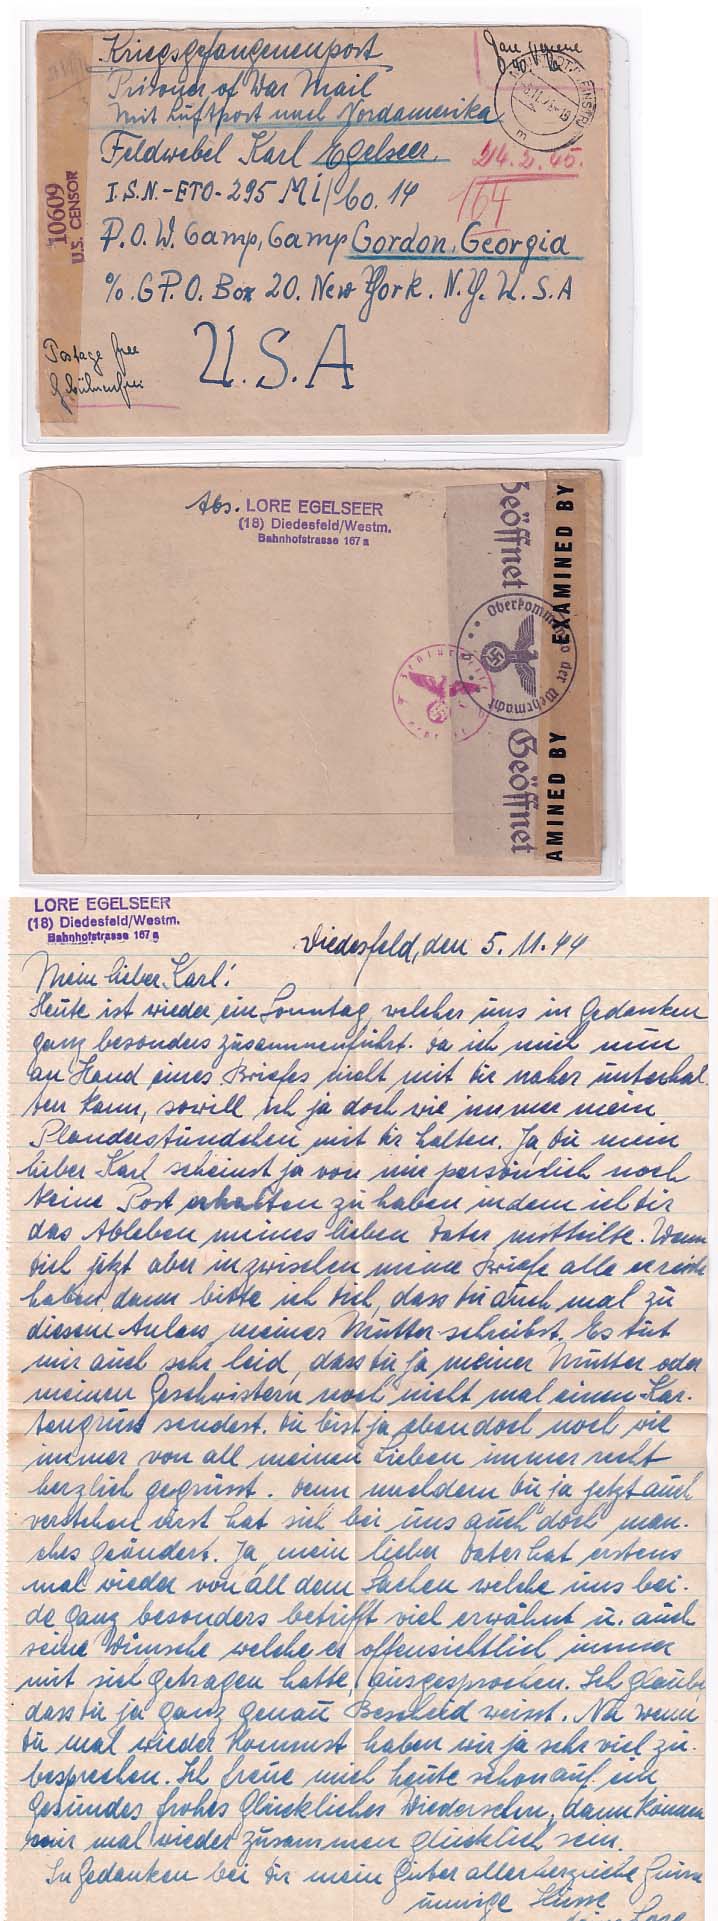 Kriegsgefangenenpost
Prisoner of War Mail
Mit Luftpost nach Nordamerika
Feldwebel Karl Egelseer
24.2.45.
I.S.N.-ETO-295 MI/Co. 14
164
P.O.W. Camp, Camp Gordon, Georgia
%. G.P.O. Box 20. New York. N.Y. U.S.A
U.S.A
10609
U.S. CENSOR
Postage free
Gebührenfrei
Abs. LORE EGELSEER
(18) Diedesfeld/Westm.
Bahnhofstrasse 167a
Geöffnet
Oberkommando der Wehrmacht
Geöffnet
EXAMINED BY
AMINED BY
LORE EGELSEER
(18) Diedesfeld/Westm.
Bahnhofstrasse 167a
Diedesfeld, den 5.11.44
Mein lieber Karl!
Heute ist wieder ein Sonntag, welcher uns in Gedanken
ganz besonders zusammenführt. Da ich mich nun
an Hand eines Briefes nicht mit Dir näher unterhal
ten kann, so will ich ja doch wie immer mein
Plauderstündchen mit Dir halten. Ja, Du mein
lieber Karl scheinst ja von mir persönlich noch
keine Post erhalten zu haben indem ich Dir
das Ableben meines lieben Vater mitteilte. Wenn
Dich jetzt aber inzwischen meine Briefe alle erreicht
haben, dann bitte ich Dich, dass Du auch mal zu
diesem Anlass meiner Mutter schreibst. Es tut
mir auch sehr leid, dass Du ja meiner Mutter oder
meinen Geschwistern noch nicht mal einen Kar-
tengruss sendest. Du bist ja eben doch noch wie
immer von all meinen Lieben immer recht
herzlich gegrüsst. Denn nachdem Du ja jetzt auch
verstehen wirst hat sich bei uns auch doch man-
ches geändert. Ja, mein lieber Vater hat erstens
mal wieder von all dem Sachen welche uns bei-
de ganz besonders betrifft viel erwähnt u. auch
seine Wünsche welche er offensichtlich immer
mit sich getragen hatte, ausgesprochen. Ich glaube,
dass Du ja ganz genau Bescheid weisst. Na wenn
Du mal wieder kommst haben wir ja sehr viel zu
besprechen. Ich freue mich heute schon auf ein
gesundes frohes glückliches Wiedersehn, dann können
wir mal wieder zusammen glücklich sein.
In Gedanken bei Dir mein Guter allerherzliche Grüsse
innige Küsse
Lore